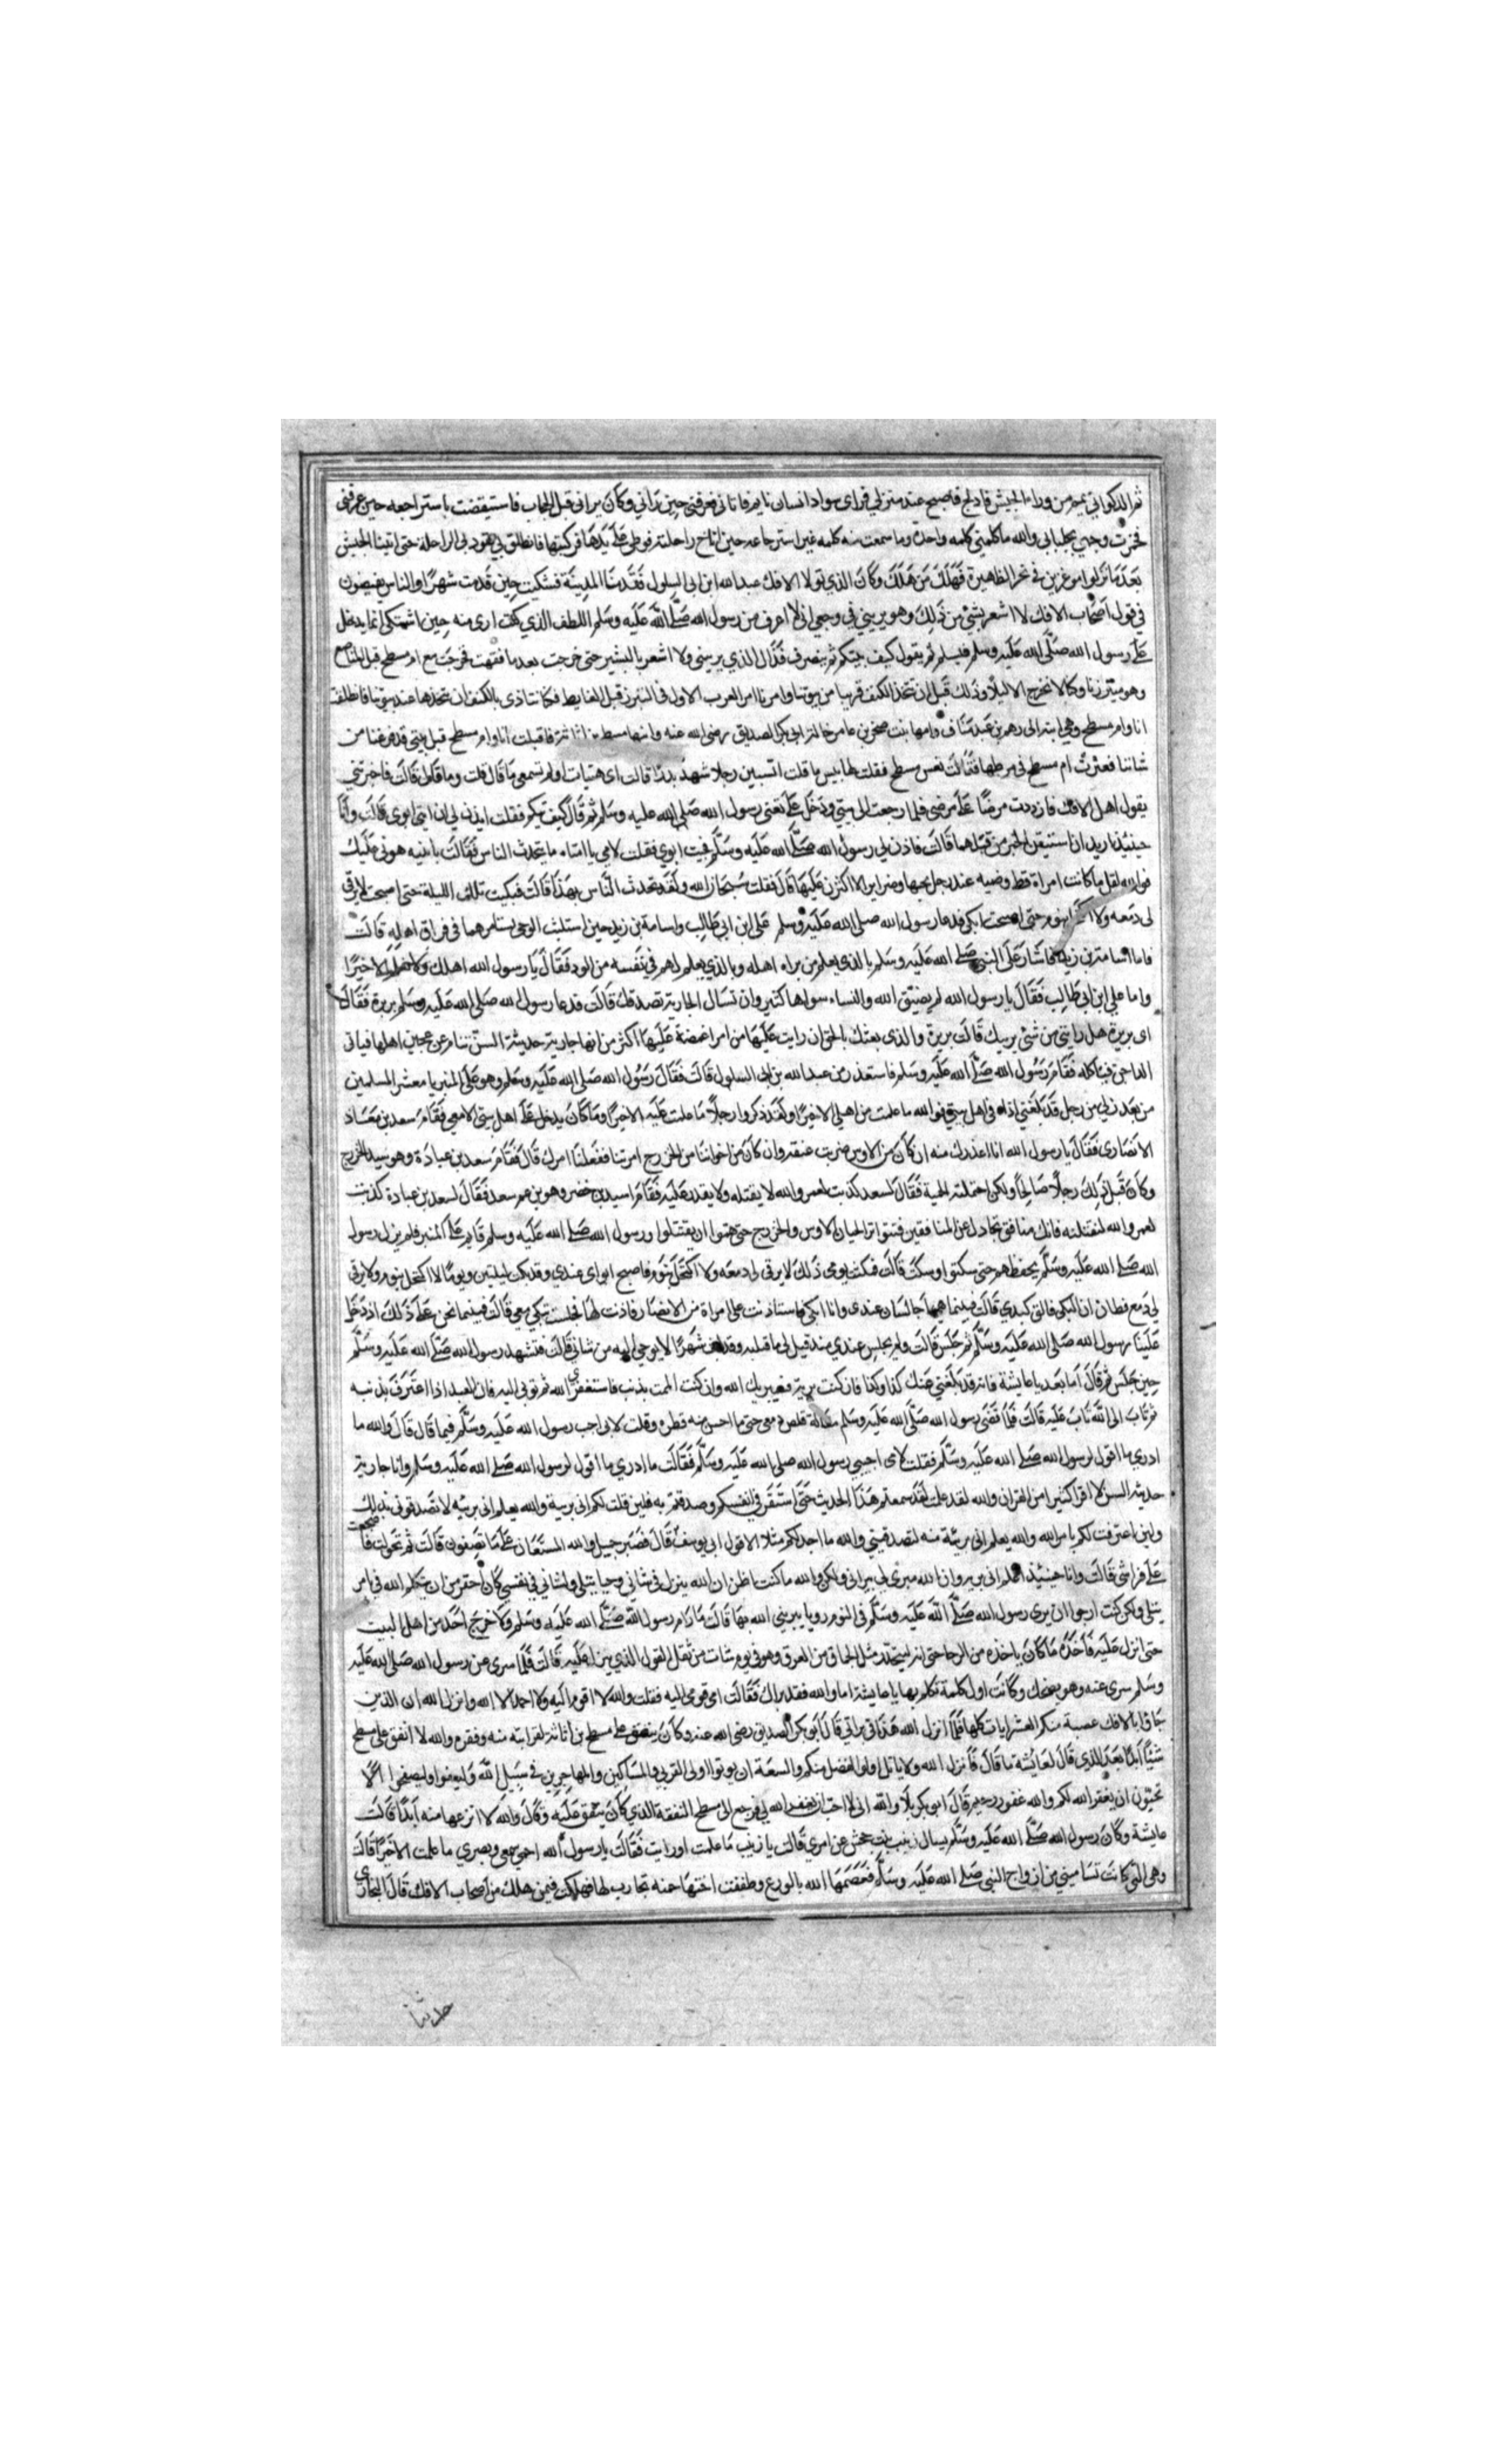 ثم الذكواني يتيمم من وراء الجيش فادلج فاصبح عند منزلي فراى سواد انسان نايم فاتاني فعرفني حين راني وكان يراني قبل الحجاب فاستيقضت باسترجاعه حين عرفني
فخمرت وجهي بجلبابي والله ما كلمني كلمه واحدة وما سمعت منه كلمه غير استرجاعه حين اناخ راحلته فوطي على يدها فركبتها فانطلق بي يقود بي الراحلة حتى اتينا الجيش
بعد ما نزلوا موغرين في نحر الظاهيرة فهلك من هلك وكان الذي تولا الافك عبد الله ابن ابي السلول فقدمنا المدينة فشكيت حين قدمت شهرا والناس يفيضون
في قول اصحاب الافك لا اشعر بشئ من ذلك وهو يريبني في وجعي اني لا اعرف من رسول الله صلى الله عليه وسلم اللطف الذي كنت ارى منه حين اشتكي انما يدخل
على رسول الله صلى الله عليه وسلم فيسلم ثم يقول كيف تيكم ثم ينصرف فذاك الذي يريبني ولا اشعر بالبشير حتى خرجت بعد ما نقهت فخرجت مع ام مسطح قبل المناصع
وهو متبرزنا وكنا لا نخرج الا ليلا وذلك قبل ان نتخذ الكنف قريبا من بيوتنا وامرنا امر العرب الاول في التبرز قبل الغايط فكنا نتاذى بالكنف ان نتخذها عند بيوتنا فانطلقت
انا وام مسطح وهي ابنة ابي رهم بن عبد مناف وامها بنت صخر بن عامر خالة ابي بكر الصديق رضي الله عنه وابنها مسطح بن اثاثة فاقبلت انا وام مسطح قبل بيتي قد فرغنا من
شاننا فعثرت ام مسطح في مرطها فقالت تعس مسطح فقلت لها بيس ما قلت اتسبين رجلا شهد بدرا قالت اى هنتاه اولم تسمعي ما قال قلت وما قال قالت فاخبرتني
بقول اهل الافك فازددت مرضا على مرضي فلما رجعت الى بيتي ودخل على تعني رسول الله صلى الله عليه وسلم ثم قال كيف تيكم فقلت ايذن لي ان اتي ابوي قالت وانا
حينيذ اريد ان استيقن الخبر من قبلهما قالت فاذن لي رسول الله صلى الله عليه وسلم فجيت ابوي فقلت لامي يا امتاه ما يتحدث الناس فقالت يا بنيه هوني عليك
فوالله لقل ما كانت امراة قط وضيه عند رجل يحبها وضراير الا اكثرن عليها قال فقلت سبحان الله ولقد تحدث الناس بهذا قالت فبكيت تلك الليلة حتى اصبحت لا يرقى
لي دمعه ولا اكتحل بنوم حتى اصبحت ابكي فدعا رسول الله صلى الله عليه وسلم على ابن ابي طالب واسامة بن زيد حين استلبث الوحي يستامرهما في فراق اهله قالت
فاما اسامة بن زيد فاشار على النبي صلى الله عليه وسلم بالذي يعلم من براه اهله وبالذي يعلم لهم في نفسه من الود فقال يا رسول الله اهلك ولا نعلم الا خيرا
واما علي ابن ابي طالب فقال يا رسول الله لم يضيق الله والنساء سواها كثير وان تسال الجارية تصدقك قالت فدعا رسول الله صلى الله عليه وسلم بريرة فقال
اى بريرة هل رايتي من شئ يريبك قالت بريرة والذى بعثك بالحق ان رايت عليها من امر اغمضة عليها اكثر من انها جارية حديثة السن تنام عن عجين اهلها فياتي
الداجن فياكله فقام رسول الله صلى الله عليه وسلم فاستعذر من عبد الله بن ابي السلول قالت فقال رسول الله صلى الله عليه وسلم وهو على المنبر يا معشر المسلمين
من يعذرني من رجل قد بلغني اذاه في اهل بيتي فوالله ما علمت من اهلي الا خيرا ولقد ذكروا رجلا ما علمت عليه الا خيرا وما كان يدخل على اهل بيتي الا معي فقام سعد بن معاذ
الانصارى فقال يا رسول الله انا اعذرك منه ان كان من الاوس ضربت عنقه وان كان من اخواننا من الخزرج امرتنا ففعلنا امرك قال فقام سعد بن عبادة وهو سيد الخزرج
وكان قبل ذلك رجلا صالحا ولكن احتملته الحمية فقال لسعد كذبت لعمر والله لا يقتله ولا يقدر عليه فقام اسيد بن خضر وهو بن عم سعد فقال لسعد بن عبادة كذبت
لعمر والله لنقتلنه فانك منافق تجادل عن المنافقين فتثوار الحيان الاوس والخزرج حتى هموا ان يقتتلوا ورسول الله صلى الله عليه وسلم قايم على المنبر فلم يزل رسول
الله صلى الله عليه وسلم يخفظهم حتى سكتوا وسكت قالت فبكيت يومي ذلك لا يرقى لي دمعه ولا اكتحل بنوم فاصبح ابواى عندي وقد بكيت ليلتين ويوما لا اكتحل بنوم ولا يرقى
لي دمع فظان ان البكي فالق كبدي قالت فبينما هما جالسان عندى وانا ابكي فاستاذنت على امراة من الانصار فاذنت لها فجلست تبكي معي قالت فبينما نحن على ذلك اذ دخل
علينا رسول الله صلى الله عليه وسلم ثم جلس قالت ولم يجلس عندي منذ قيل لي ما قيل قبله وقد لبث شهرا لا يوحى اليه من شاني قالت فتشهد رسول الله صلى الله عليه وسلم
حين جلس ثم قال اما بعد يا عايشة فانه قد بلغني عنك كذا وكذا فان كنت برية فسيبريك الله وان كنت الممت بذنب فاستغفري الله ثم توبي اليه فان العبد اذا اعترف بذنبه
ثم تاب الى الله تاب عليه قالت فلما قضى رسول الله صلى الله عليه وسلم مقالة قلص دمعي حتى ما احس منه قطره وقلت لابي اجب رسول الله عليه وسلم فيما قال قال والله ما
ادري ما اقول لرسول الله صلى الله عليه وسلم فقلت لامى اجيبي رسول الله صلى الله عليه وسلم فقالت ما ادري ما اقول لرسول الله صلى الله عليه وسلم وانا جارية
حديثه السن لا اقرا كثيرا من القران والله لقد علمت لقد سمعتم هذا الحديث حتى استقر في انفسكم وصدقتم به فلين قلت لكم اني برية والله يعلم اني بريه لا تصدقوني بذلك
ولين اعترفت لكم بامر الله والله يعلم اني بريئة منه لتصدقيني والله ما اجد لكم مثلا الا قول ابي يوسف قال فصبر جميل والله المستعان على ما تصفون قالت ثم تحولت فاضجعت
على فراشي قالت وانا حينيذ اعلم اني برية وان الله مبرئي ببراتي ولكن والله ما كنت اظن ان الله ينزل في شاني وحيا يتلى ولشاني في نفسي كان احقر من ان يتكلم الله في بامر
يتلى ولكن كنت ارجوا ان يرى رسول الله صلى الله عليه وسلم في النوم رويا يبريني الله بها قالت ما رام رسول الله صلى الله عليه وسلم ولا خرج احد من اهل البيت
حتى انزل عليه فاخذه ما كان ياخذه من الرحا حتى انه ليتحدر مثل الجان من العرق وهو في يوم شات من ثقل القول الذي ينزل عليه قالت فلما سرى عن رسول الله صلى الله عليه
وسلم سرى عنه وهو يضحك وكانت اول كلمة تكلم بها يا عايشة اما والله فقد براك فقالت امي قومي اليه فقلت والله لا اقوم اليه ولا احمد الا الله وانزل الله ان الذين
جاوا بالافك عصبة منكم العشر ايات كلها فلما انزل الله هذا في براتي قال ابو بكر الصديق رضي الله عنه وكان ينفق على مسطح بن اثاثة لقرابته منه وفقره والله لا انفق على مسطح
شيئا ابدا بعد الذي قال لعايشة ما قال فانزل الله ولا ياتل اولوا الفضل منكم والسعة ان يوتوا اولى القربى والمساكين والمهاجرين في سبيل الله وليعفوا وليصفحوا الا
تحبون ان يغفر الله لكم والله غفور رحيم قال ابي بكر بلا والله اني لا احب ان يغفر الله لي فرجع الى مسطح النفقة الذي كان ينفق عليه وقال والله لا انزعها منه ابدا قالت
عايشة وكان رسول الله صلى الله عليه وسلم يسال زينب بنت جحش عن امري قالت يا زينب ما علمت او رايت فقالت يا رسول الله احمي سمعي وبصري ما علمت الا خيرا قالت
وهي التي كانت تساميني من ازواج النبي صلى الله عليه وسلم فعصمها الله بالورع وطفقت اختها حمنه تحارب لها فهلكت فيمن هلك من اصحاب الافك قال البخاري
حدثنا